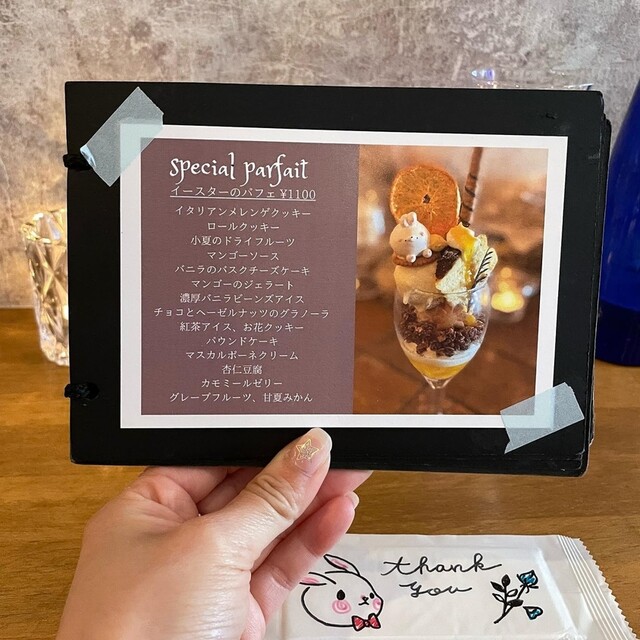 special parfait
イースターのパフェ ¥1100
イタリアンメレンゲクッキー
ロールクッキー
小夏のドライフルーツ
マンゴーソース
バニラのバスクチーズケーキ
マンゴーのジェラート
濃厚バニラビーンズアイス
チョコとヘーゼルナッツのグラノーラ
紅茶アイス、お花クッキー
パウンドケーキ
マスカルポーネクリーム
杏仁豆腐
カモミールゼリー
グレープフルーツ、甘夏みかん
thank
you